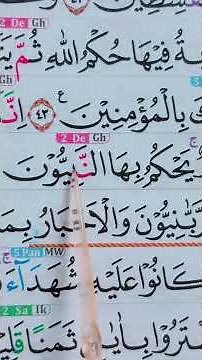 2 De Gh
ةُ فِيْهَا حُكْمُ اللّٰهِ ثُمَّ
بِالْمُؤْمِنِيْنَ ﴿٤٣﴾ ع
2 De Gh
يَحْكُمُ بِهَا النَّبِيُّوْنَ
رَّبّٰنِيُّوْنَ وَالْاَحْبَارُ بِمَا
5 Pan MW
كَانُوْا عَلَيْهِ شُهَدَآءَ
2 Sa Ik
تَرُوْا بِاٰيٰتِيْ ثَمَنًا قَلِيْ